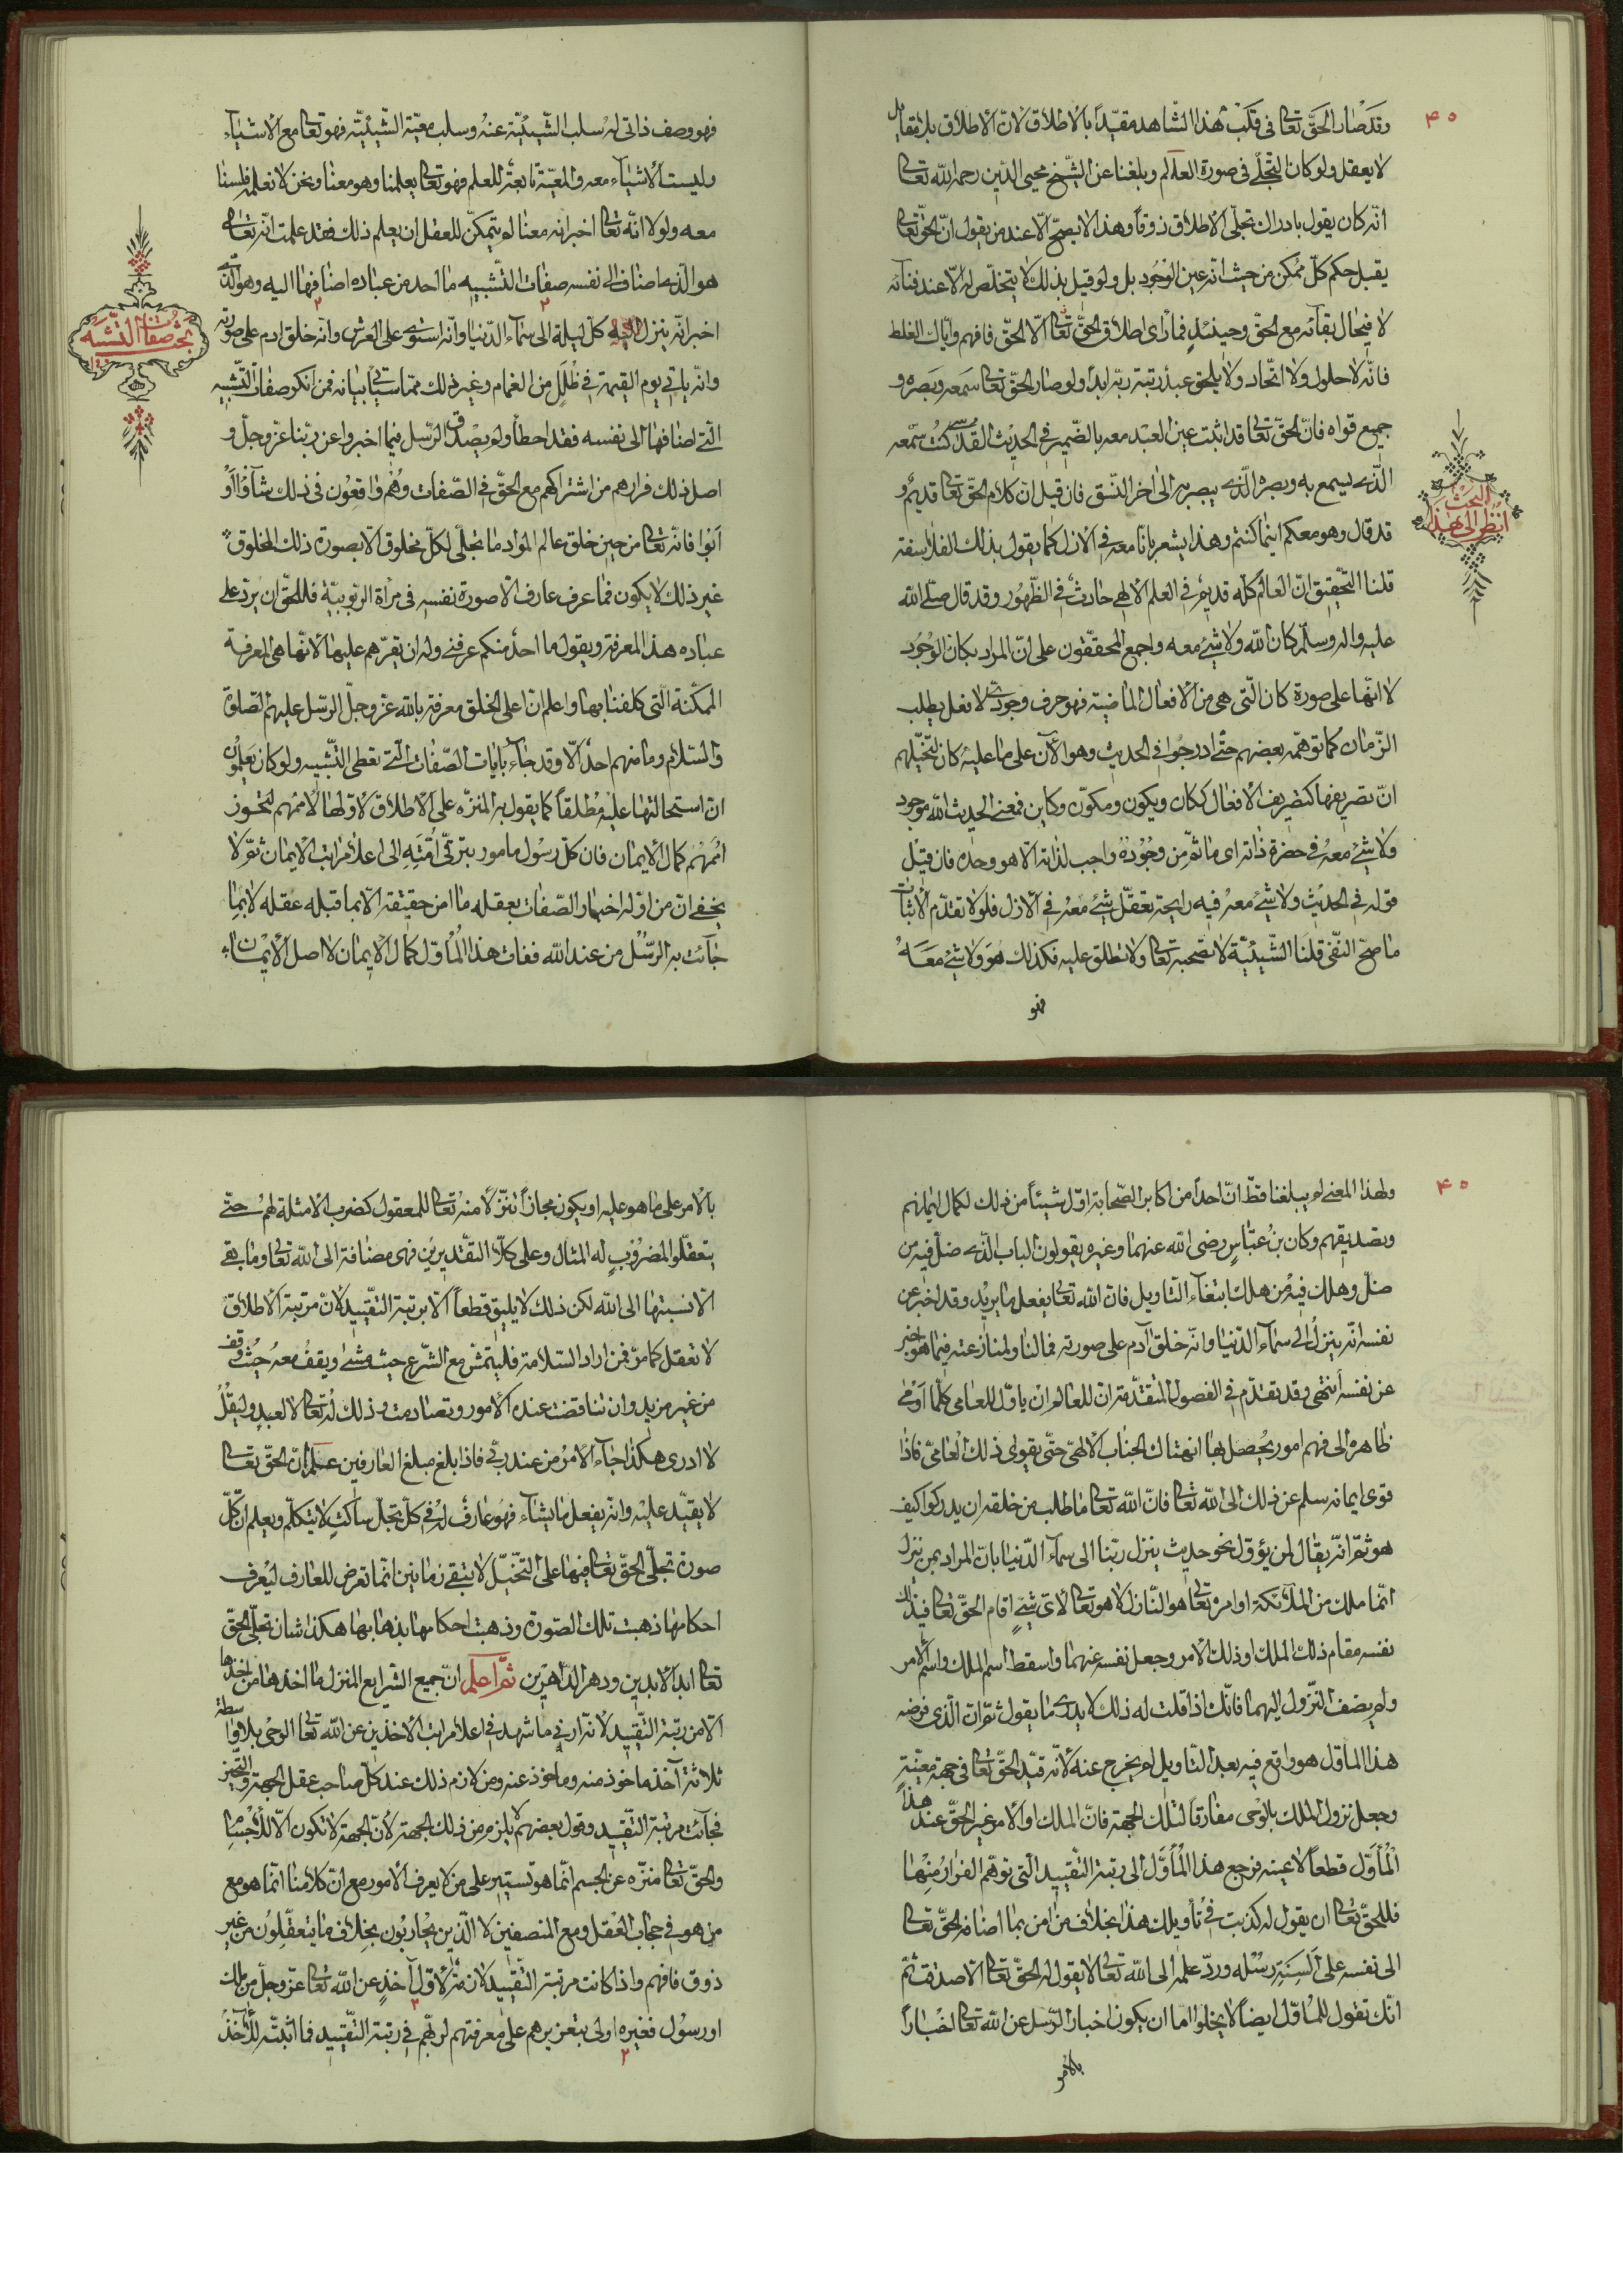 ٤٠
وقد صار الحق تعالى فى قلب هذا الشاهد مقيداً بالاطلاق لان الاطلاق بلا مقابل
لا يعقل ولو كان التجلى فى صورة العالم وبلغنا عن الشيخ محيى الدين رحمه الله تعالى
انه كان يقول بادراك تجلى الاطلاق ذوقاً وهذا لا يصح الا عند من يقول ان الحق تعالى
يقبل حكم كل ممكن من حيث انه عين الوجود بل ولو قيل بذلك لا يتخلص له الا عند فنائه
لا فى حال بقائه مع الحق وحينئذٍ فما رأى اطلاق الحق تعالى الا الحق فافهم واياك الغلط
فانه لا حلول ولا اتحاد ولا يلحق عبد رتبة ربه ابداً ولو صار الحق تعالى سمعه وبصره و
جميع قواه فان الحق تعالى قد اثبت عين العبد معه بالضمير فى الحديث القدسى كنت سمعه
الذى يسمع به وبصره الذى يبصر به الى اخر النسق فان قيل ان كلام الحق تعالى قديم و
قد قال وهو معكم اينما كنتم وهذا يشعر بانا معه فى الازل كما يقول بذلك الفلاسفة
البحث
انظر الى هذا
قلنا التحقيق ان العالم كله قديم فى العلم الالهى حادث فى الظهور وقد قال صلى الله
عليه واله وسلم كان الله ولا شئ معه واجمع المحققون على ان المراد بكان الوجود
لا انها على صورة كان التى هى من الافعال الماضية فهو حرف وجودى لا فعل يطلب
الزمان كما توهمه بعضهم حتى ادرجوا فى الحديث وهو الآن على ما عليه كان لتخيلهم
ان تصريفها كتصريف الافعال ككان ويكون ومكون وكاين فمعنى الحديث الله موجود
ولا شئ معه فى حضرة ذاته اى ما ثم من وجوده واجب لذاته الا هو وحده فان قيل
قوله فى الحديث ولا شئ معه فيه رايحة تعقل شئ معه فى الازل فلولا تقدم الاثبات
ما صح النفى قلنا الشيئية لا تصحبه تعالى ولا تطلق عليه فكذلك هو ولا شئ معه
فهو
فهو وصف ذاتى له سلب الشيئية عنه وسلب معية الشيئية فهو تعالى مع الاشياء
وليست الاشياء معه والمعية تابعة للعلم فهو تعالى يعلمنا وهو معنا ونحن لا نعلمه فلسنا
معه ولولا انه تعالى اخبر انه معنا لم يتمكن للعقل ان يعلم ذلك فقد علمت انه تعالى
هو الذى اضاف الى نفسه صفات التشبيه ما احد من عباده اضافها اليه وهو الذى
اخبر انه ينزل كل ليلة الى سماء الدنيا وانه استوى على العرش وانه خلق ادم على صورته
بحث صفات التشبيه
وانه ياتى يوم القيمة فى ظلل من الغمام وغير ذلك مما سيأتى بيانه فمن انكر صفات التشبيه
التى اضافها الى نفسه فقد اخطأ ولم يصدق الرسل فيما اخبروا عن ربنا عز وجل و
اصل ذلك فرارهم من اشتراكهم مع الحق فى الصفات وهم واقعون فى ذلك شاؤا او
ابوا فانه تعالى من حين خلق عالم المواد ما تجلى لكل مخلوق الا بصورة ذلك المخلوق
غير ذلك لا يكون فما عرف عارف الا صورة نفسه فى مرآة الربوبية فللحق ان يرد على
عباده هذه المعرفة ويقول ما احد منكم عرفنى وله ان يقرهم عليها لانها هى المعرفة
الممكنة التى كلفنا بها واعلم ان اعلى الخلق معرفة بالله عز وجل الرسل عليهم الصلوة
والسلام وما منهم احد الا وقد جاء بآيات الصفات التى تعطى التشبيه ولو كان يعلمون
ان استحالتها عليه مطلقاً كما يقول به المنزه على الاطلاق لاولها لاممهم لتحوز
اممهم كمال الايمان فان كل رسول مامور بترقى امته الى اعلا مراتب الايمان ثم لا
يخفى ان من اول اخبار الصفات بعقله ما امن حقيقة الا بما قبله عقله لا بما
جاءت به الرسل من عند الله ففات هذا المأول كمال الايمان لا اصل الايمان
٤٠
ولهذا المعنى لم يبلغنا قط ان احداً من اكابر الصحابة اول شيئاً من ذلك لكمال ايمانهم
وتصديقهم وكان بن عباس رضى الله عنهما وغيره يقولون الباب الذى ضل فيه من
ضل وهلك فيه من هلك ابتغاء التاويل فان الله تعالى يفعل ما يريد وقد اخبر عن
نفسه انه ينزل الى سماء الدنيا وانه خلق آدم على صورته فما لنا ولمنازعته فيما هو اخبر
عن نفسه انتهى وقد تقدم فى الفصول المتقدمة ان للعالم ان ياول للعامى كلما اومى
ظاهره الى فهم امور يحصل بها انهتاك الجناب الالهى حتى يقوى ذلك العامى فاذا
قوى ايمانه سلم عن ذلك الى الله تعالى فان الله تعالى ما طلب من خلقه ان يدركوا كيف
هو ثم انه يقال لمن يؤول نحو حديث ينزل ربنا الى سماء الدنيا بان المراد بمن ينزل
انما ملك من الملائكة او امره تعالى هو النازل لا هو تعالى لاى شئٍ اقام الحق تعالى فى ذلك
نفسه مقام ذلك الملك او ذلك الامر وجعل نفسه عنهما واسقط اسم الملك واسم الامر
ولم يضف النزول اليهما فانك اذا قلت له ذلك لا يدرى ما يقول ثم ان الذى فر منه
هذا المأول هو واقع فيه بعد التاويل لم يخرج عنه لانه قيد الحق تعالى فى جهة معينة
وجعل نزول الملك بالوحى مفارقاً لتلك الجهة فان الملك او الامر غير الحق عند هذا
المأول قطعاً لا عينه فرجع هذا المأول الى رتبة التقييد التى توهم الفرار منها
فللحق تعالى ان يقول له كذبت فى تأويلك هذا بخلاف من امن بما اضافه الحق تعالى
الى نفسه على السنة رسله ورد علمه الى الله تعالى لا يقول له الحق تعالى الا صدقت ثم
انك تقول للمأول ايضاً لا يخلوا اما ان يكون اخبار الرسل عن الله تعالى اخباراً
بالامر
بالامر على ما هو عليه او يكون مجازاً تنزلا منه تعالى للمعقول كضرب الامثلة لهم حتى
يتعقلوا المضروب له المثال وعلى كلا التقديرين فهى مضافة الى الله تعالى وما بقى
الا نسبتها الى الله لكن ذلك لا يليق قطعاً الا برتبة التقييد لان مرتبة الاطلاق
لا تعقل كما مر فمن اراد السلامة فليتمش مع الشرع حيث مشى ويقف معه حيث وقف
من غير مزيد وان تناقضت عنده الامور وتصادمت وذلك له تعالى لا لعبدٍ وليقل
لا ادرى هكذا جاء الامر من عند ربى فاذا بلغ مبلغ العارفين علم ان الحق تعالى
لا يقيد عليه وانه يفعل ما يشاء فهو عارف له فى كل تجلٍ ساكت لا يتكلم ويعلم ان كل
صورة تجلى الحق تعالى فيها على التخيل لا تبقى زمانين انما تعرض للعارف ليعرف
احكامها ذهبت تلك الصورة وذهبت احكامها بذهابها هكذا شان تجلى الحق
تعالى ابد الابدين ودهر الداهرين ثم اعلم ان جميع الشرايع المنزل ما اخذها من اخذها
الا من رتبة التقييد لانه اربى ما شهد فى اعلا مراتب الاخذين عن الله تعالى الوحى بلا واسطة
ثلاثة آخذ ماخوذ منه وماخوذ عنه ومن لازم ذلك عند كل صاحب عقل الجهة والتحيز
فجائت مرتبة التقييد وقول بعضهم لا يلزم من ذلك الجهة لان الجهة لا تكون الا للاجسام
والحق تعالى منزه عن الجسم انما هو تستير على من لا يعرف الامور مع ان كلامنا انما هو مع
من هو فى حجاب العقل ومع المنصفين لا الذين يحاربون بخلاف ما يتعقلون من غير
ذوق فافهم واذا كانت مرتبة التقييد لازمة لاول آخذٍ عن الله تعالى عز وجل من ملك
او رسول فغيره اولى بتعزيرهم على معرفتهم لربهم فى رتبة التقييد فما اثبته للآخذ